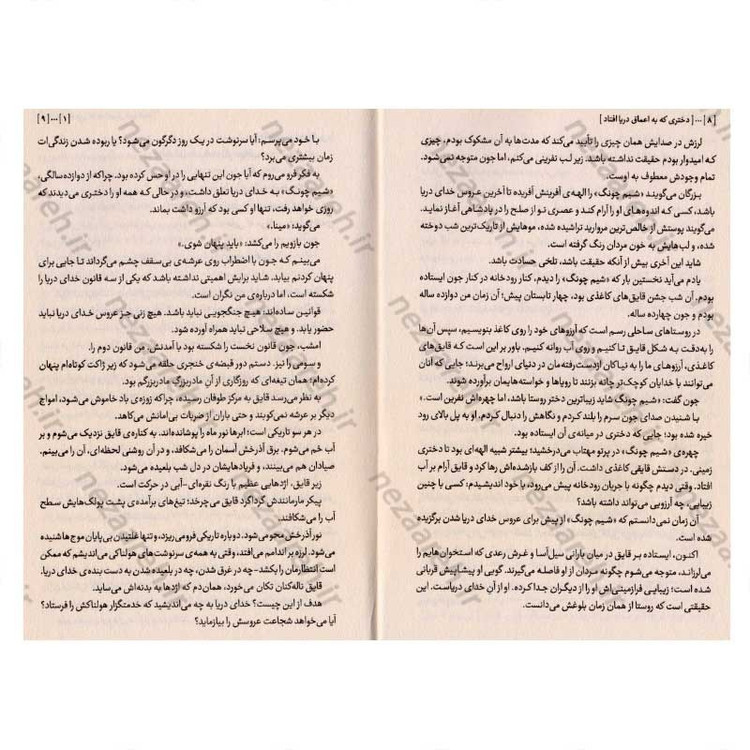 [ ۸ ] ... [ دختری که به اعماق دریا افتاد ]
لرزش در صدایش همان چیزی را تأیید می‌کند که مدت‌ها به آن مشکوک بودم، چیزی
که امیدوار بودم حقیقت نداشته باشد. زیر لب نفرینی می‌کنم، اما جون متوجه نمی‌شود.
تمام وجودش معطوف به اوست.
بزرگان می‌گویند «شیم چونگ» را الهه‌ی آفرینش آفریده تا آخرین عروس خدای دریا
باشد، کسی که اندوه‌های او را آرام کند و عصری نو از صلح را در پادشاهی آغاز نماید.
می‌گویند پوستش از خالص‌ترین مروارید تراشیده شده، موهایش از تاریک‌ترین شب دوخته
شده، و لب‌هایش به خون مردان رنگ گرفته است.
شاید این آخری بیش از آنکه حقیقت باشد، تلخی حسادت باشد.
یادم می‌آید نخستین بار که «شیم چونگ» را دیدم، کنار رودخانه در کنار جون ایستاده
بودم. آن شب جشن قایق‌های کاغذی بود، چهار تابستان پیش؛ آن زمان من دوازده ساله
بودم و جون چهارده ساله.
در روستاهای ساحلی رسم است که آرزوهای خود را روی کاغذ بنویسیم، سپس آن‌ها
را به‌دقت به شکل قایق تا کنیم و روی آب روانه کنیم. باور بر این است که قایق‌های
کاغذی، آرزوهای ما را به نیاکان ازدست‌رفته‌مان در دنیای ارواح می‌برند؛ جایی که آنان
می‌توانند با خدایان کوچک‌تر چانه بزنند تا رویاها و خواسته‌هایمان برآورده شوند.
«شیم چونگ شاید زیباترین دختر روستا باشد، اما چهره‌اش نفرین است.»
با شنیدن صدای جون سرم را بلند کردم و نگاهش را دنبال کردم. او به پل بالای رود
خیره شده بود؛ جایی که دختری در میانه‌ی آن ایستاده بود.
چهره‌ی «شیم چونگ» در پرتو مهتاب می‌درخشید؛ بیشتر شبیه الهه‌ای بود تا دختری
زمینی. در دستش قایقی کاغذی داشت. آن را از کف بازشده‌اش رها کرد و قایق آرام بر آب
افتاد. وقتی دیدم چگونه با جریان رودخانه پیش می‌رود، با خود اندیشیدم: کسی با چنین
زیبایی، چه آرزویی می‌تواند داشته باشد؟
آن زمان نمی‌دانستم که «شیم چونگ» از پیش برای عروس خدای دریا شدن برگزیده
شده است.
اکنون، ایستاده بر قایق در میان بارانی سیل‌آسا و غرش رعدی که استخوان‌هایم را
می‌لرزاند، متوجه می‌شوم چگونه مردان از او فاصله می‌گیرند. گویی او پیشاپیش قربانی
شده است؛ زیبایی فرازمینی‌اش او را از دیگران جدا کرده. او از آنِ خدای دریاست. این
حقیقتی است که روستا از همان زمان بلوغش می‌دانست.
[ ۱ ] ... [ ۹ ]
با خود می‌پرسم: آیا سرنوشت در یک روز دگرگون می‌شود؟ یا ربوده شدن زندگی‌ات
زمان بیشتری می‌برد؟
به فکر فرو می‌روم که آیا جون این تنهایی را در او حس کرده بود. چراکه از دوازده‌سالگی،
«شیم چونگ» به خدای دریا تعلق داشت، و در حالی که همه او را دختری می‌دیدند که
روزی خواهد رفت، تنها او کسی بود که آرزو داشت بماند.
می‌گوید: «مینا.»
جون بازویم را می‌کشد: «باید پنهان شوی.»
می‌بینم که جون با اضطراب روی عرشه‌ی بی‌سقف چشم می‌گرداند تا جایی برای
پنهان کردنم بیابد. شاید برایش اهمیتی نداشته باشد که یکی از سه قانون خدای دریا را
شکسته است، اما درباره‌ی من نگران است.
قوانین ساده‌اند: هیچ جنگجویی نباید باشد. هیچ زنی جز عروس خدای دریا نباید
حضور یابد. و هیچ سلاحی نباید همراه آورده شود.
امشب، جون قانون نخست را شکسته بود با آمدنش. من قانون دوم را.
و سومی را نیز. دستم دور قبضه‌ی خنجری حلقه می‌شود که زیر ژاکت کوتاه‌ام پنهان
کرده‌ام؛ همان تیغه‌ای که روزگاری از آنِ مادربزرگِ مادربزرگم بود.
به نظر می‌رسد قایق به مرکز طوفان رسیده، چراکه زوزه‌ی باد خاموش می‌شود، امواج
دیگر بر عرشه نمی‌کوبند و حتی باران از ضربات بی‌امانش می‌کاهد.
در هر سو تاریکی است؛ ابرها نور ماه را پوشانده‌اند. به کناره‌ی قایق نزدیک می‌شوم و بر
آب خم می‌شوم. برق آذرخش آسمان را می‌شکافد، و در آن روشنی لحظه‌ای، آن را می‌بینم.
صیادان هم می‌بینند، و فریادهایشان در دل شب بلعیده می‌شود.
زیر قایق، اژدهایی عظیم با رنگ نقره‌ای-آبی در حرکت است.
پیکر مارمانندش گرداگرد قایق می‌چرخد؛ تیغ‌های برآمده‌ی پشت پولک‌هایش سطح
آب را می‌شکافند.
نور آذرخش محو می‌شود. دوباره تاریکی فرو می‌ریزد، و تنها غلتیدن بی‌پایان موج‌ها شنیده
می‌شود. لرزه بر اندامم می‌افتد، وقتی به همه‌ی سرنوشت‌های هولناکی می‌اندیشم که ممکن
است انتظارمان را بکشد-چه در غرق شدن، چه در بلعیده شدن به دست بنده‌ی خدای دریا.
قایق ناله‌کنان تکان می‌خورد، همان‌دم که اژدها به بدنه‌اش می‌ساید.
هدف از این چیست؟ خدای دریا به چه می‌اندیشید که خدمتگزار هولناکش را فرستاد؟
آیا می‌خواهد شجاعت عروسش را بیازماید؟
nezaareh.ir